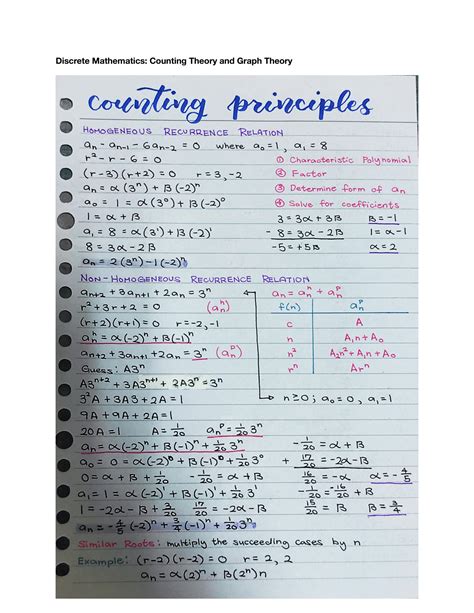 Discrete Mathematics: Counting Theory and Graph Theory
counting principles
HOMOGENEOUS RECURRENCE RELATION
aₙ - aₙ₋₁ - 6aₙ₋₂ = 0 where a₀ = 1, a₁ = 8
r² - r - 6 = 0 ① Characteristic Polynomial
(r-3)(r+2) = 0 r = 3, -2 ② Factor
aₙ = α(3ⁿ) + β(-2)ⁿ ③ Determine form of aₙ
a₀ = 1 = α(3⁰) + β(-2)⁰ ④ Solve for coefficients
1 = α + β 3 = 3α + 3β β = -1
a₁ = 8 = α(3¹) + β(-2)¹ - 8 = 3α - 2β 1 = α - 1
8 = 3α - 2β -5 = +5β α = 2
aₙ = 2(3ⁿ) - 1(-2)ⁿ
NON-HOMOGENEOUS RECURRENCE RELATION
aₙ₊₂ + 3aₙ₊₁ + 2aₙ = 3ⁿ aₙ = aₙʰ + aₙᵖ
r² + 3r + 2 = 0 (aₙʰ) f(n) aₙᵖ
(r+2)(r+1) = 0 r = -2, -1 c A
aₙʰ = α(-2)ⁿ + β(-1)ⁿ n A₁n + A₀
aₙ₊₂ + 3aₙ₊₁ + 2aₙ = 3ⁿ (aₙᵖ) n² A₂n² + A₁n + A₀
Guess: A3ⁿ rⁿ Arⁿ
A3ⁿ⁺² + 3A3ⁿ⁺¹ + 2A3ⁿ = 3ⁿ
3²A + 3A3 + 2A = 1 n ≥ 0; a₀ = 0, a₁ = 1
9A + 9A + 2A = 1
20A = 1 A = 1/20 aₙᵖ = 1/20 3ⁿ
aₙ = α(-2)ⁿ + β(-1)ⁿ + 1/20 3ⁿ -1/20 = α + β
a₀ = 0 = α(-2)⁰ + β(-1)⁰ + 1/20 3⁰ + 17/20 = -2α - β
0 = α + β + 1/20 -1/20 = α + β 16/20 = -α α = -4/5
a₁ = 1 = α(-2)¹ + β(-1)¹ + 1/20 3¹ -1/20 = -16/20 + β
1 = -2α - β + 3/20 17/20 = -2α - β 15/20 = β β = 3/4
aₙ = -4/5 (-2)ⁿ + 3/4 (-1)ⁿ + 1/20 3ⁿ
Similar Roots: multiply the succeeding cases by n
Example: (r-2)(r-2) = 0 r = 2, 2
aₙ = α(2)ⁿ + β(2ⁿ)n